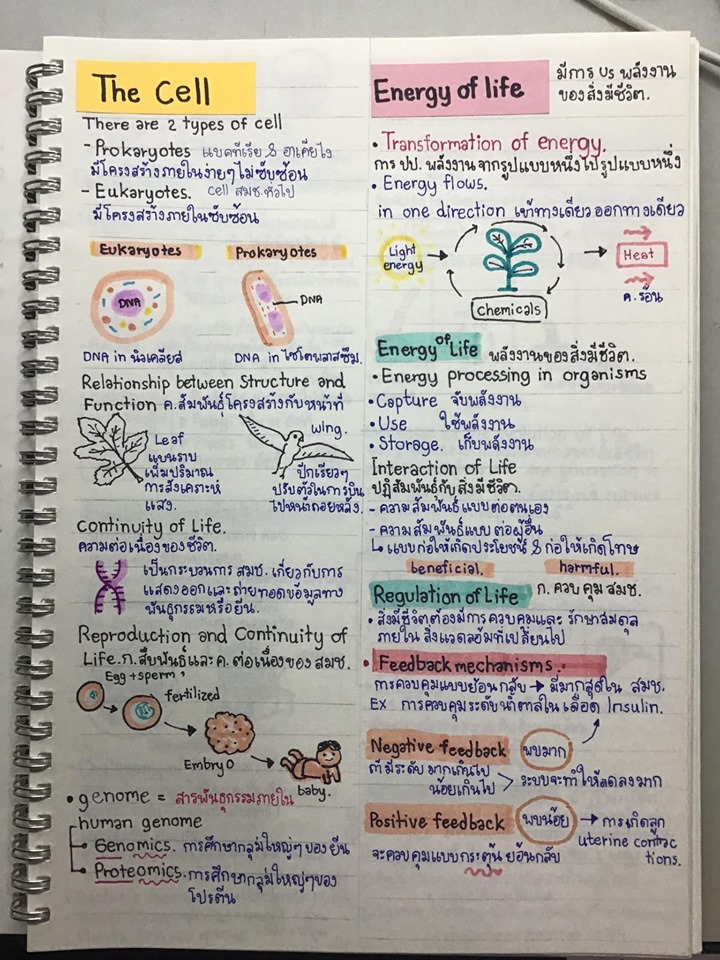 The Cell
There are 2 types of cell
- Prokaryotes แบคทีเรีย & อาเคียไง
มีโครงสร้างภายในง่ายๆ ไม่ซับซ้อน
- Eukaryotes. cell สมช.ทั่วไป
มีโครงสร้างภายในซับซ้อน
Eukaryotes Prokaryotes
DNA
DNA
DNA in นิวเคลียส DNA in ไซโตพลาสซึม.
Relationship between Structure and
Function ค.สัมพันธ์โครงสร้างกับหน้าที่
Leaf
แบนราบ
เพิ่มปริมาณ
การสังเคราะห์
แสง.
wing.
ปีกเรียวๆ
ปรับตัวในการบิน
ไปหน้าถอยหลัง.
Continuity of Life.
ความต่อเนื่องของชีวิต.
เป็นกระบวนการ สมช. เกี่ยวกับการ
แสดงออกและถ่ายทอดข้อมูลทาง
พันธุกรรมหรือยีน.
Reproduction and Continuity of
Life. ก.สืบพันธุ์และ ค. ต่อเนื่องของ สมช.
Egg + sperm
fertilized
Embryo
baby.
• genome = สารพันธุกรรมภายใน
human genome
Genomics. การศึกษากลุ่มใหญ่ๆ ของยีน
Proteomics. การศึกษากลุ่มใหญ่ๆของ
โปรตีน
Energy of life
มีการ ปรุ พลังงาน
ของสิ่งมีชีวิต.
• Transformation of energy.
การ ปป. พลังงานจากรูปแบบหนึ่งไปรูปแบบหนึ่ง
• Energy flows.
in one direction เข้าทางเดียว ออกทางเดียว
Light
energy
chemicals
Heat
ค.ร้อน
Energy of Life พลังงานของสิ่งมีชีวิต.
• Energy processing in organisms
• Capture จับพลังงาน
• Use ใช้พลังงาน
• Storage. เก็บพลังงาน
Interaction of Life
ปฏิสัมพันธ์กับสิ่งมีชีวิต.
- ความสัมพันธ์แบบต่อตนเอง
- ความสัมพันธ์แบบ ต่อผู้อื่น
↳ แบบก่อให้เกิดประโยชน์ & ก่อให้เกิดโทษ
beneficial. harmful.
Regulation of Life ก. ควบคุม สมช.
• สิ่งมีชีวิตต้องมีการควบคุมและ รักษาสมดุล
ภายใน สิ่งแวดล้อมที่เปลี่ยนไป
• Feedback mechanisms.
การควบคุมแบบย้อนกลับ → มีมากสุดใน สมช.
Ex การควบคุมระดับน้ำตาลในเลือด Insulin.
Negative feedback พบมาก
ถ้ามีระดับ มากเกินไป
น้อยเกินไป > ระบบจะทำให้ลดลงมาก
Positive feedback พบน้อย → การเกิดลูก
uterine contrac
tions.
จะควบคุมแบบกระตุ้น ย้อนกลับ